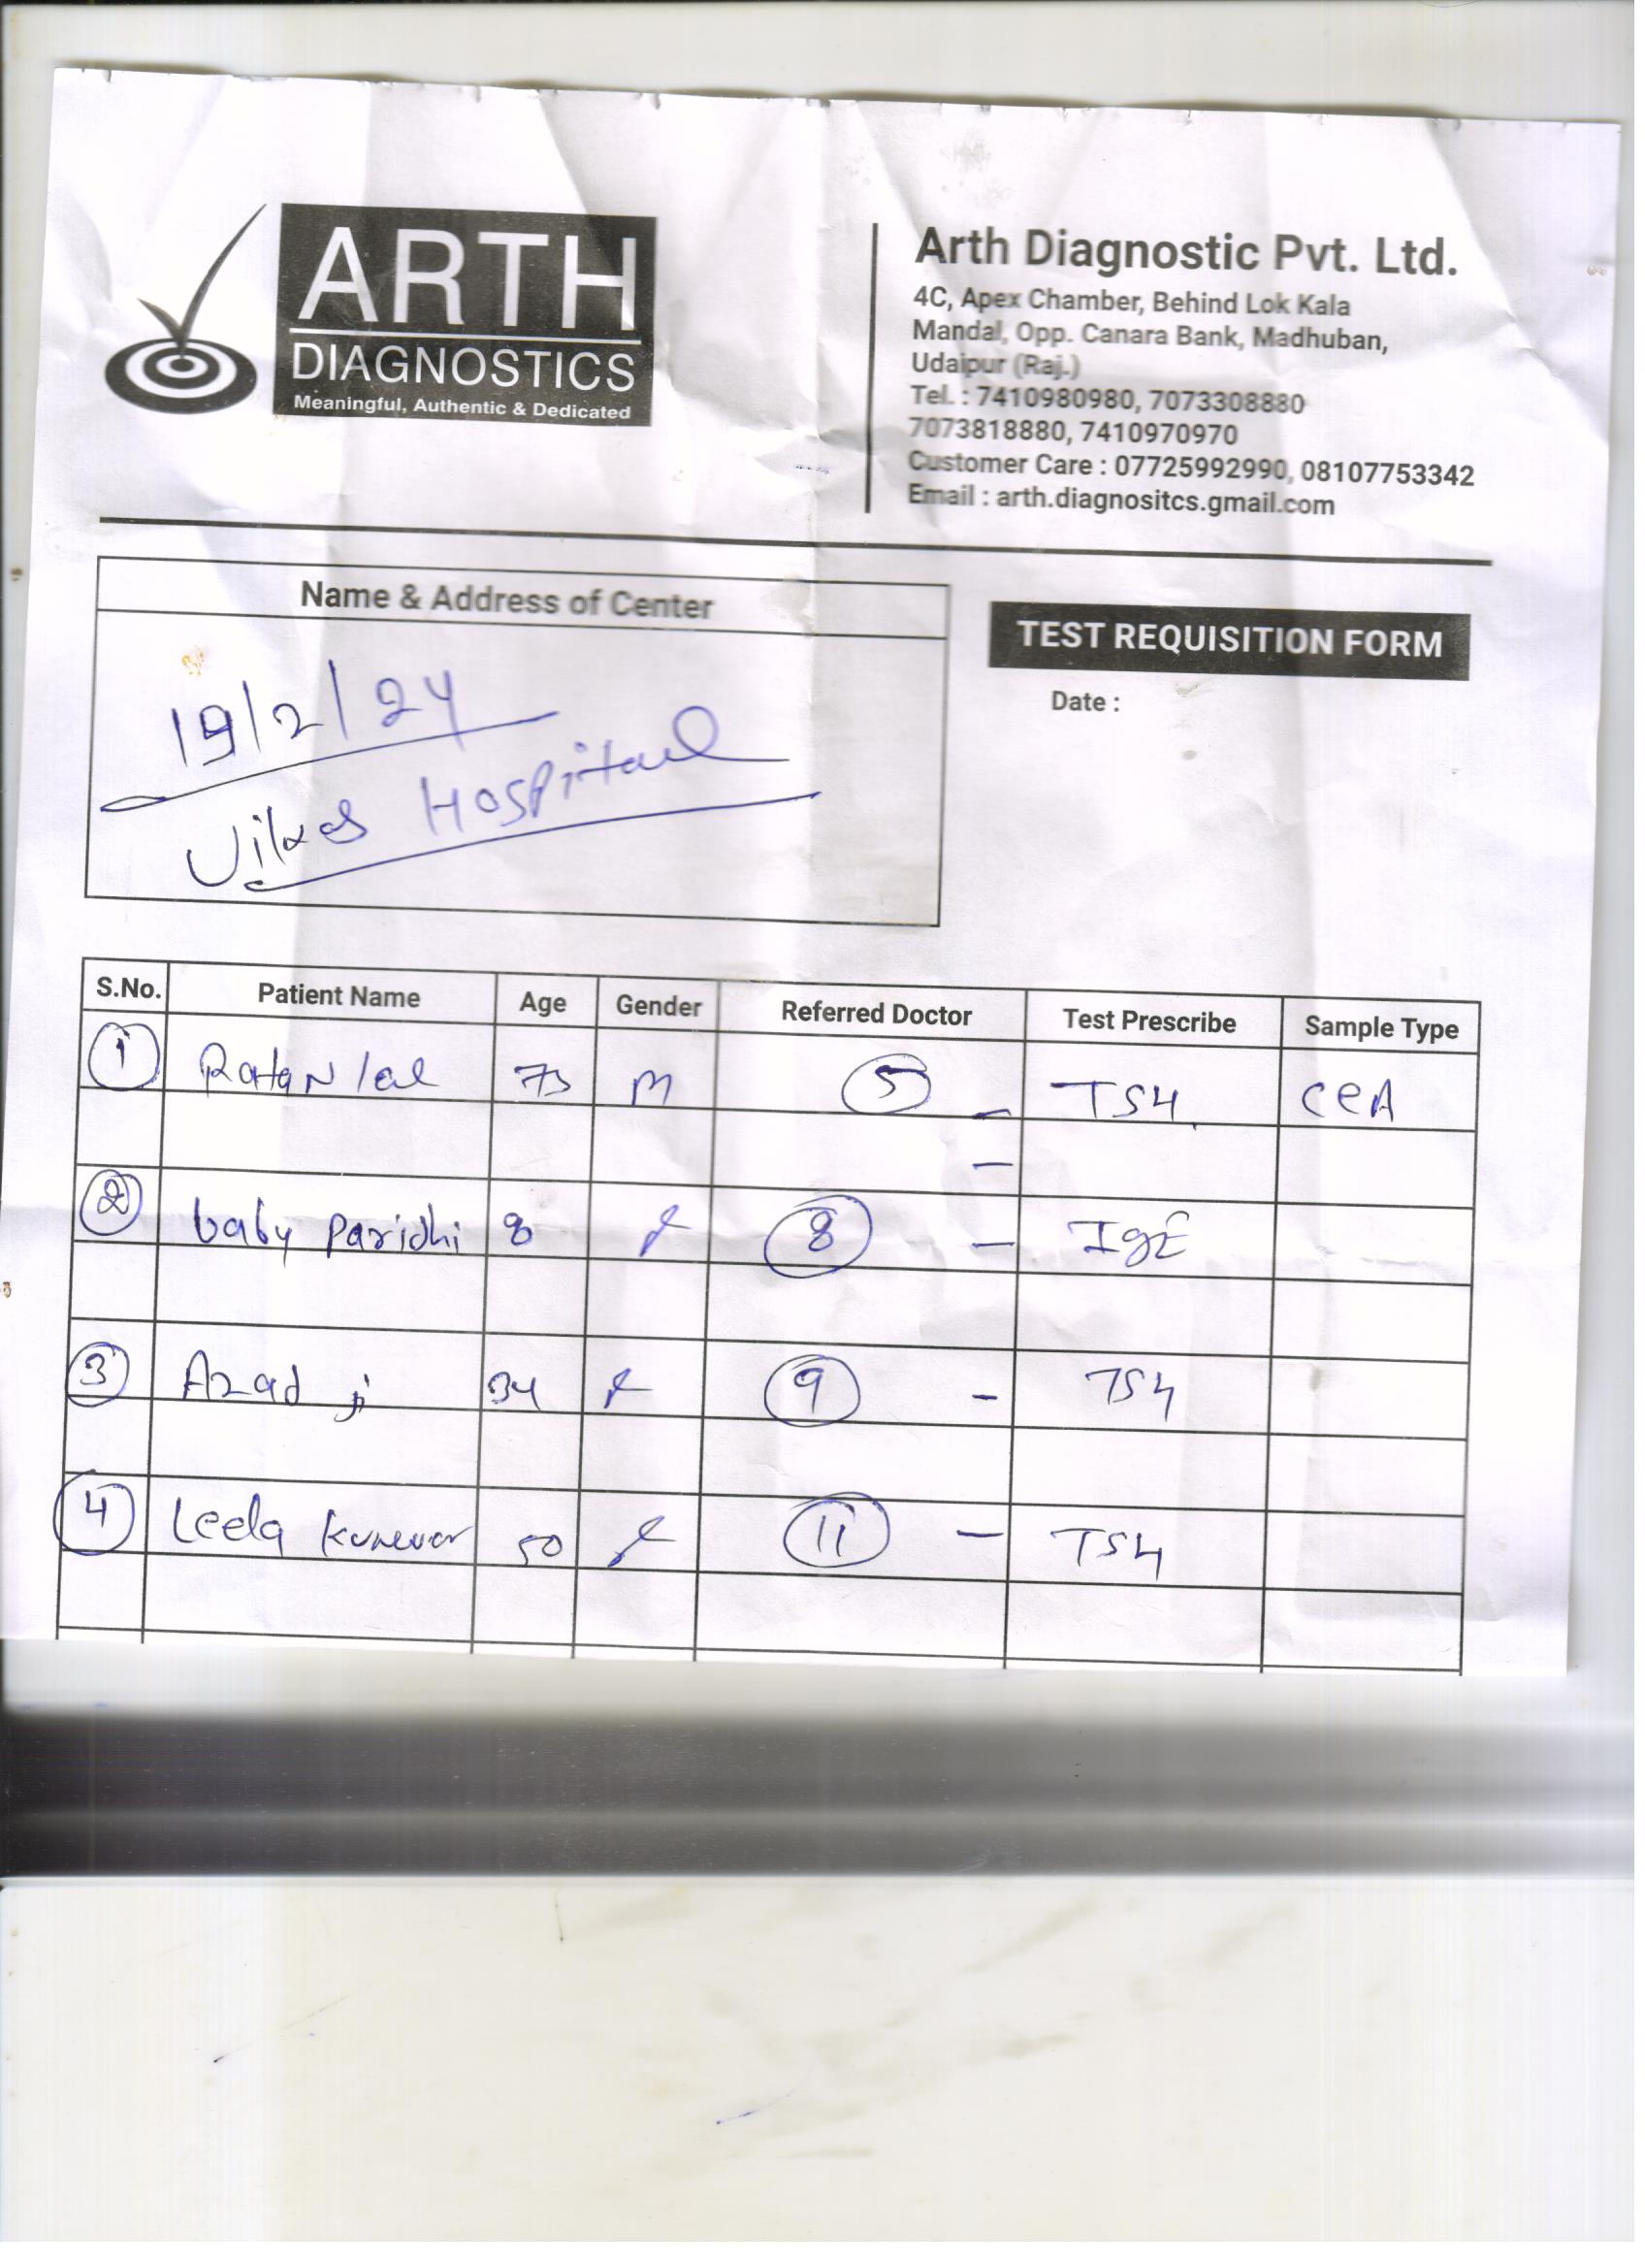 ARTH
DIAGNOSTICS
Meaningful, Authentic & Dedicated
Arth Diagnostic Pvt. Ltd.
4C, Apex Chamber, Behind Lok Kala
Mandal, Opp. Canara Bank, Madhuban,
Udaipur (Raj.)
Tel. : 7410980980, 7073308880
7073818880, 7410970970
Customer Care : 07725992990, 08107753342
Email : arth.diagnositcs.gmail.com
Name & Address of Center
19/2/24
Vikas Hospital
TEST REQUISITION FORM
Date :
S.No. Patient Name Age Gender Referred Doctor Test Prescribe Sample Type
1 Ratan lal M 5 - TSH CEA
-
2 baby Paridhi 8 f 8 - IgE
3 Azad ji 34 f 9 - TSH
4 Leela kunwar 50 f 11 - TSH